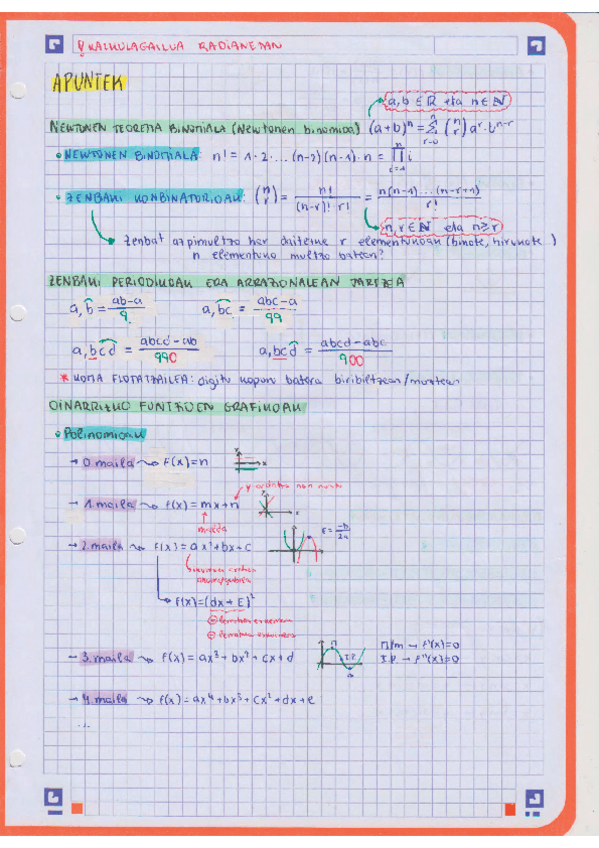 KALKULAGAILUA RADIANETAN
APUNTEK
a,b ∈ ℝ eta n ∈ ℕ
NEWTONEN TEOREMA BINOMIALA (Newtonen binomioa) (a+b)ⁿ = Σ (n r) aʳ·bⁿ⁻ʳ
• NEWTONEN BINOMIALA: n! = 1·2·...(n-2)(n-1)·n = ∏ i
• ZENBAKI KONBINATORIOAK: (n r) = n!/((n-r)!·r!) = n(n-1)...(n-r+1)/r!
n,r ∈ ℕ eta n≥r
• Zenbat azpimultzo har daitezke r elementukoak (binoke, hirunoke)
n elementuko multzo batean?
ZENBAKI PERIODIKOAK ERA ARRAZIONALEAN JARTZEA
a,b = ab-a/9 a,bc = abc-a/99
a,bcd = abcd-ab/990 a,bcd = abcd-abc/900
* KOMA FLOTATZAILEA: digitu kopuru batera biribiltzean/moztean
OINARRIZKO FUNTZIOEN GRAFIKOAK
• Polinomioak
→ 0.maila f(x)=n
y ardatza non moztu
→ 1.maila f(x)=mx+n
malda
→ 2.maila f(x)=ax²+bx+c
E = -b/2a
f(x)=(dx+E)²
→ 3.maila f(x)=ax³+bx²+cx+d
M/m → f'(x)=0
I.P → f''(x)=0
→ 4.maila f(x)=ax⁴+bx³+cx²+dx+e
...